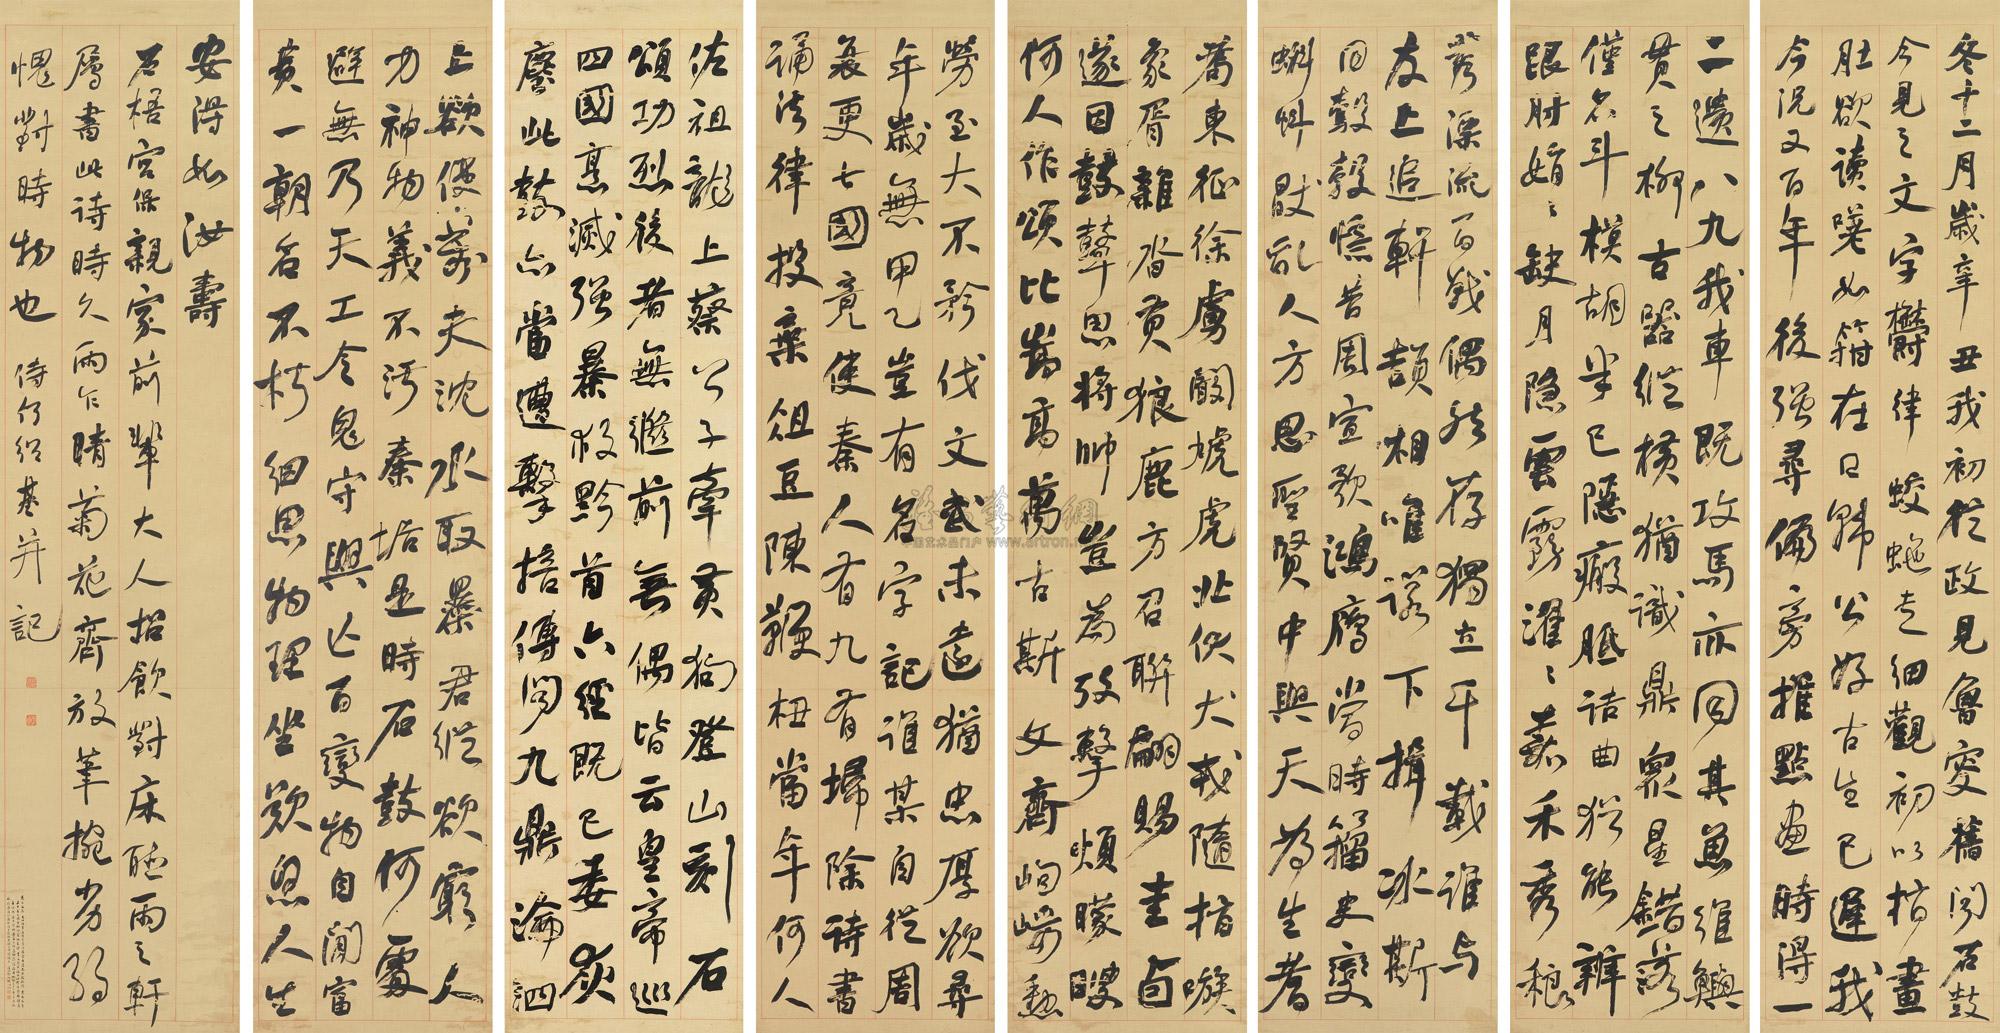 冬十二月歲辛丑我初從政見魯叟舊聞石鼓
今見之文字鬱律蛟蛇走細觀初以指畫
肚欲讀嗟如箝在口韓公好古生已遲我
今況又百年後強尋偏旁推點畫時得一
二遺八九我車既攻馬亦同其魚維鱮
貫之柳古器縱橫猶識鼎眾星錯落
僅名斗模糊半已隱瘢胝詰曲猶能辨
跟肘娟〻缺月隱雲霧濯〻嘉禾秀稂
莠漂流百戰偶然存獨立千載誰與
友上追軒頡相唯諾下揖冰斯
同鷇㝅憶昔周宣歌鴻雁當時籀史變
蝌蚪厭亂人方思聖賢中興天為生耆
耇東征徐虜闞虓虎北伏犬戎隨指嗾
象胥雜沓貢狼鹿方召聯翩賜圭卣
遂因鼓鼙思將帥豈為考擊煩矇瞍
何人作頌比嵩高萬古斯文齊岣嶁勳
勞至大不矜伐文武未遠猶忠厚欲尋
年歲無甲乙豈有名字記誰某自從周
衰更七國竟使秦人有九有掃除詩書
誦法律投棄俎豆陳鞭杻當年何人
佐祖龍上蔡公子牽黃狗登山刻石
頌功烈後者無繼前無偶皆云皇帝巡
四國烹滅強暴救黔首六經既已委灰
塵此鼓亦當遭擊掊傳聞九鼎淪泗
上欲使萬夫沈水取暴君縱欲窮人
力神物義不污秦垢是時石鼓何處
避無乃天工令鬼守興亡百變物自閒富
貴一朝名不朽細思物理坐歎息人生
安得如汝壽
石梧宮保親家前輩大人招飲對床聽雨之軒
屬書此詩時久雨乍晴菊花齊放筆腕劣弱
愧對時物也 侍何紹基并記